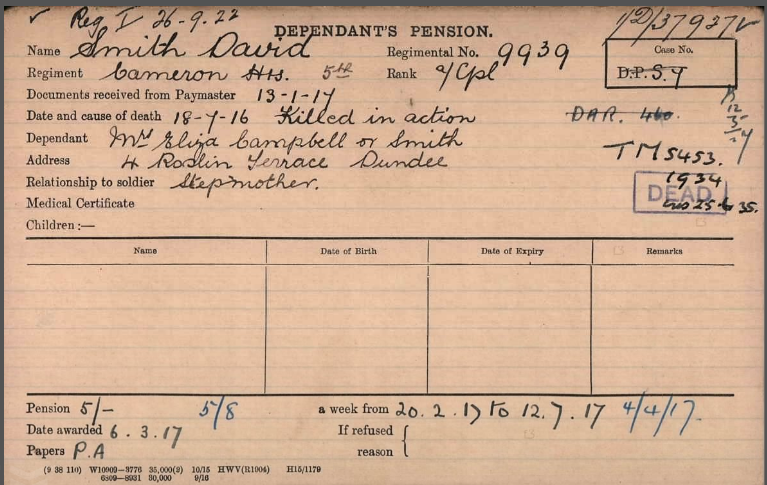 ✓ Reg I 26-9.22
1D/37937 ✓
DEPENDANT'S PENSION.
Name Smith David Regimental No. 9939
Case No.
D.P.S.Y
Regiment Cameron Hrs. 5th Rank a/Cpl
Documents received from Paymaster 13-1-17
Date and cause of death 18-7-16 Killed in action
DAR. 460.
Dependant Mrs Eliza Campbell or Smith
Address 4 Roslin Terrace Dundee
TM5453.
Relationship to soldier Stepmother.
1934
DEAD
25.6.35.
Medical Certificate
Children :—
Name Date of Birth Date of Expiry Remarks
Pension 5/- 5/8 a week from 20.2.17 to 12.7.17 4/4/17.
Date awarded 6.3.17 If refused {
Papers P.A reason
(9 38 110) W10909—3776 35,000(3) 10/15 HWV(R1004) H15/1179
6809—8931 30,000 9/16